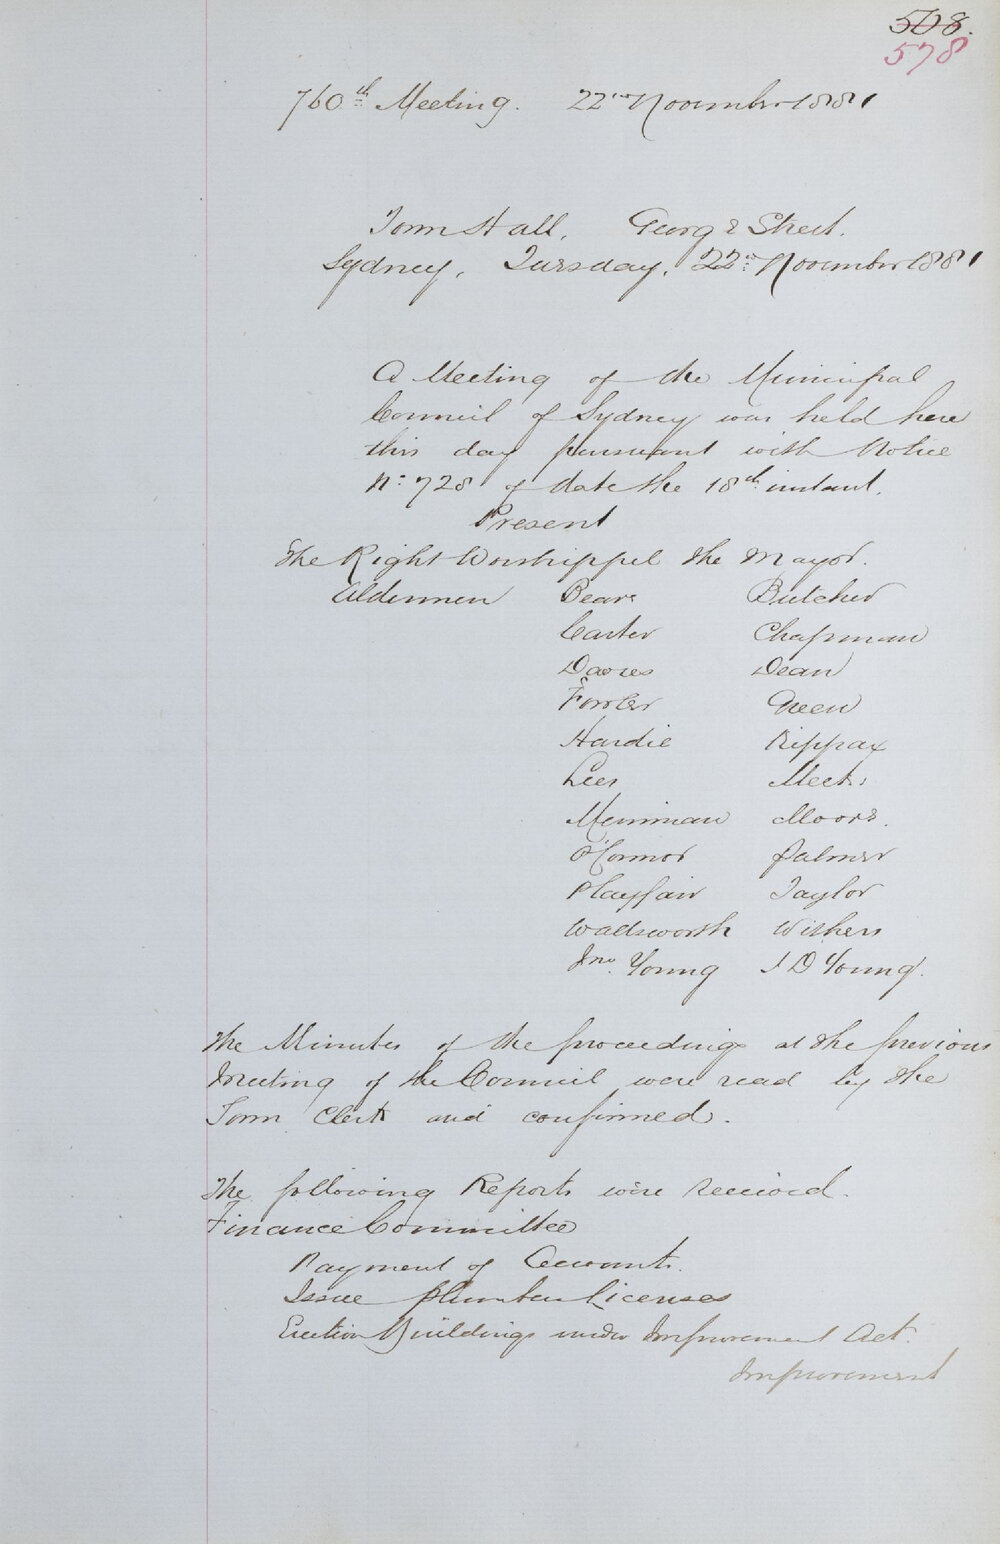 508.
578
760th Meeting. 22nd November 1881
Town Hall, George Street.
Sydney, Tuesday, 22nd November 1881
A Meeting of the Municipal
Council of Sydney was held here
this day pursuant with Notice
No. 728 of date the 18th instant.
Present
The Right Worshippful the Mayor.
Aldermen Beare Butcher
Carter Chapman
Davies Dean
Fowler Green
Hardie Kippax
Lees Meeks
Merriman Moore.
O'Connor Palmer
Playfair Taylor
Wadsworth Withers
Jno. Young J D Young.
The Minutes of the proceedings at the previous
Meeting of the Council were read by the
Town Clerk and confirmed.
The following Reports were received.
Finance Committee
Payment of Accounts.
Issue plumber Licenses
Erection Buildings under Improvement Act.
Improvement